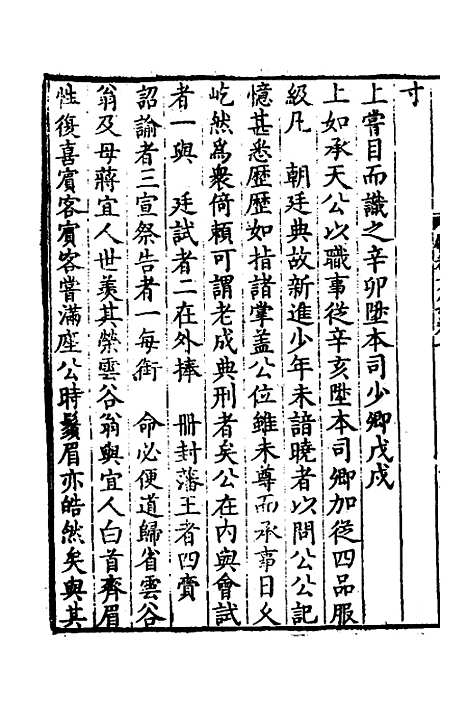 寸
上嘗目而識之辛卯陞本司少卿戊戌
上如承天公以職事從辛亥陞本司卿加從四品服
級凡　朝廷典故新進少年未諳曉者以問公公記
憶甚悉歷歷如指諸掌蓋公位雖未尊而承事日久
屹然爲衆倚賴可謂老成典刑者矣公在內與會試
者一與　廷試者二在外捧　冊封藩王者四賫
詔諭者三宣祭告者一每銜　命必便道歸省雲谷
翁及母蔣宜人世羨其榮雲谷翁與宜人白首齊眉
性復喜賓客賓客嘗滿座公時鬚眉亦皓然矣與其